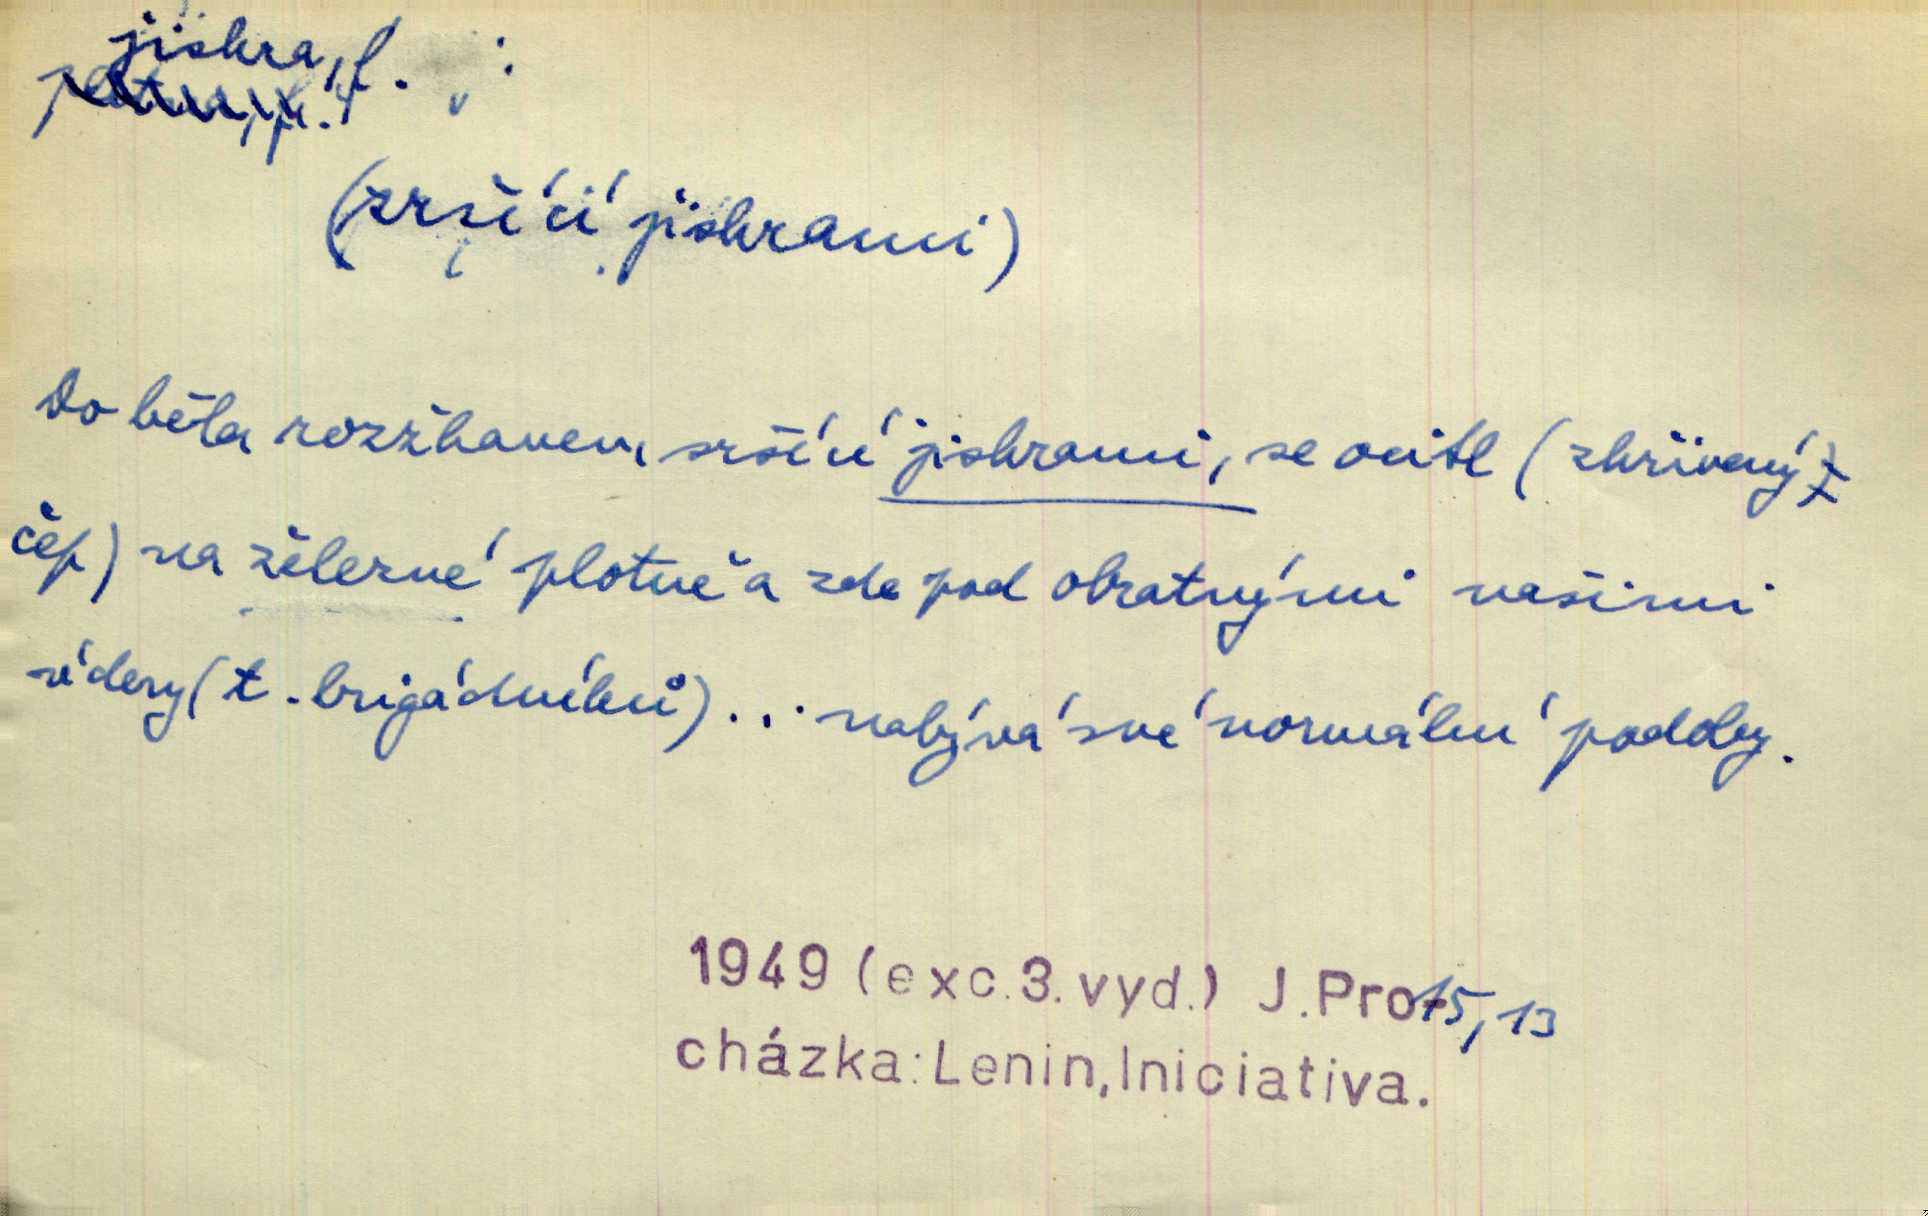 jiskra, f. :
(zršící jiskrami)
Do běla rozžhaven, sršící jiskrami, se ocitl (zkřivený
čep) na železné plotně a zde pod obratnými našimi
údery (t. brigádníků) ... nabývá své normální podoby.
1949 (exc. 3. vyd.) J. Pro- 15, 13
cházka: Lenin, Iniciativa.